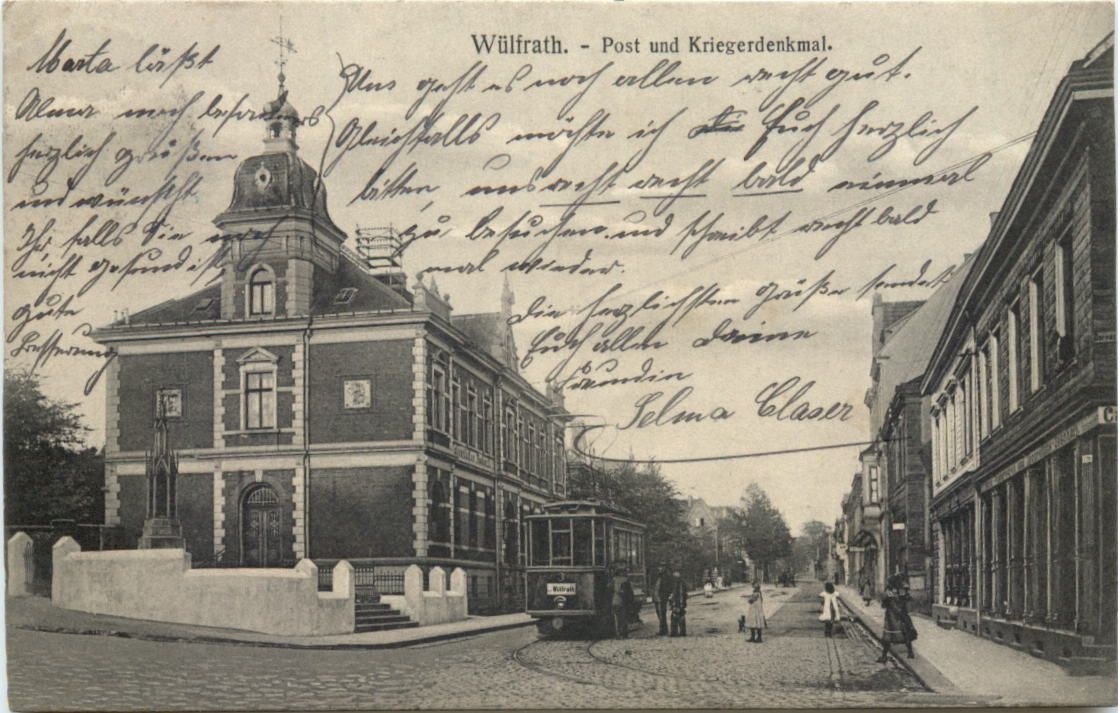 Wülfrath. - Post und Kriegerdenkmal.
Marta läßt
Alma noch besonders
herzlich grüßen
und wünscht
Ihr falls Sie noch
nicht gesund ist
gute
Besserung
Uns geht es noch allen recht gut.
Gleichfalls möchte ich Euch herzlich
bitten, uns recht recht bald einmal
zu besuchen und schreibt recht bald
mal wieder.
Die herzlichsten Grüße sendet
Euch allen Deine
Freundin
Selma Claser
Wülfrath